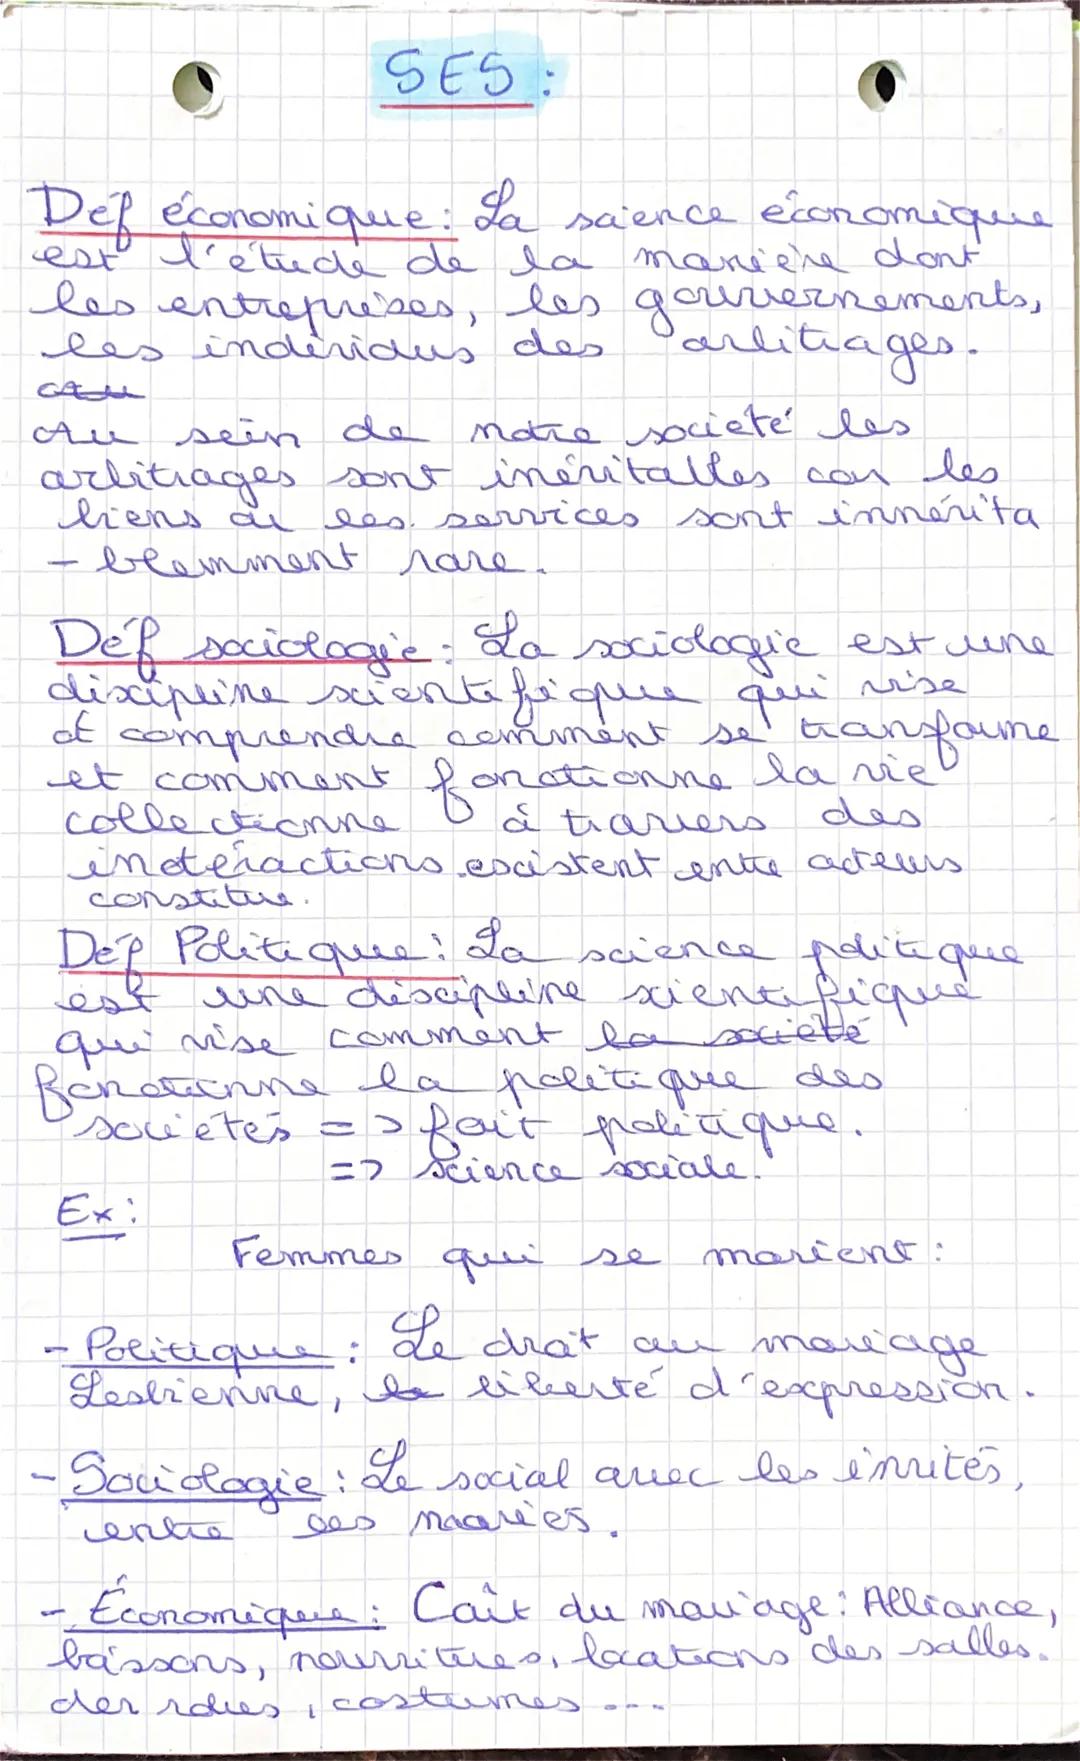 SES :
Déf économique : La science économique
est l'étude de la manière dont
les entreprises, les gouvernements,
les individus des arbitrages.
Au
Au sein de notre société les
arbitrages sont inévitables car les
biens ou les services sont innévita
- blemment rare.
Déf sociologie : La sociologie est une
discipline scientifique qui vise
à comprendre comment se transforme
et comment fonctionne la vie
collectionne à travers des
intéractions existent entre acteurs
constitue.
Déf Politique : La science politique
est une discipline scientifique
qui vise comment la société
fonctionne la politique des
sociétés => fait politique.
=> science sociale.
Ex :
Femmes qui se marient :
- Politique : Le droit au mariage
Lesbienne, la liberté d'expression.
- Sociologie : Le social avec les invités,
entre les mariés.
- Économique : Coût du mariage : Alliance,
boissons, nourritures, locations des salles.
der robes, costumes ...